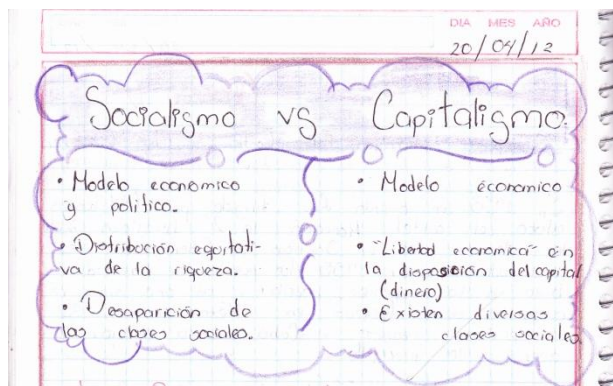 DIA MES AÑO
20/04/12
Socialismo vs Capitalismo.
• Modelo economico
y politico.
• Distribución equitati-
va de la riqueza.
• Desaparición de
las clases sociales.
• Modelo économico
• "Libertad economica" en
la disposición del capital
(dinero)
• Existen diversas
clases sociales